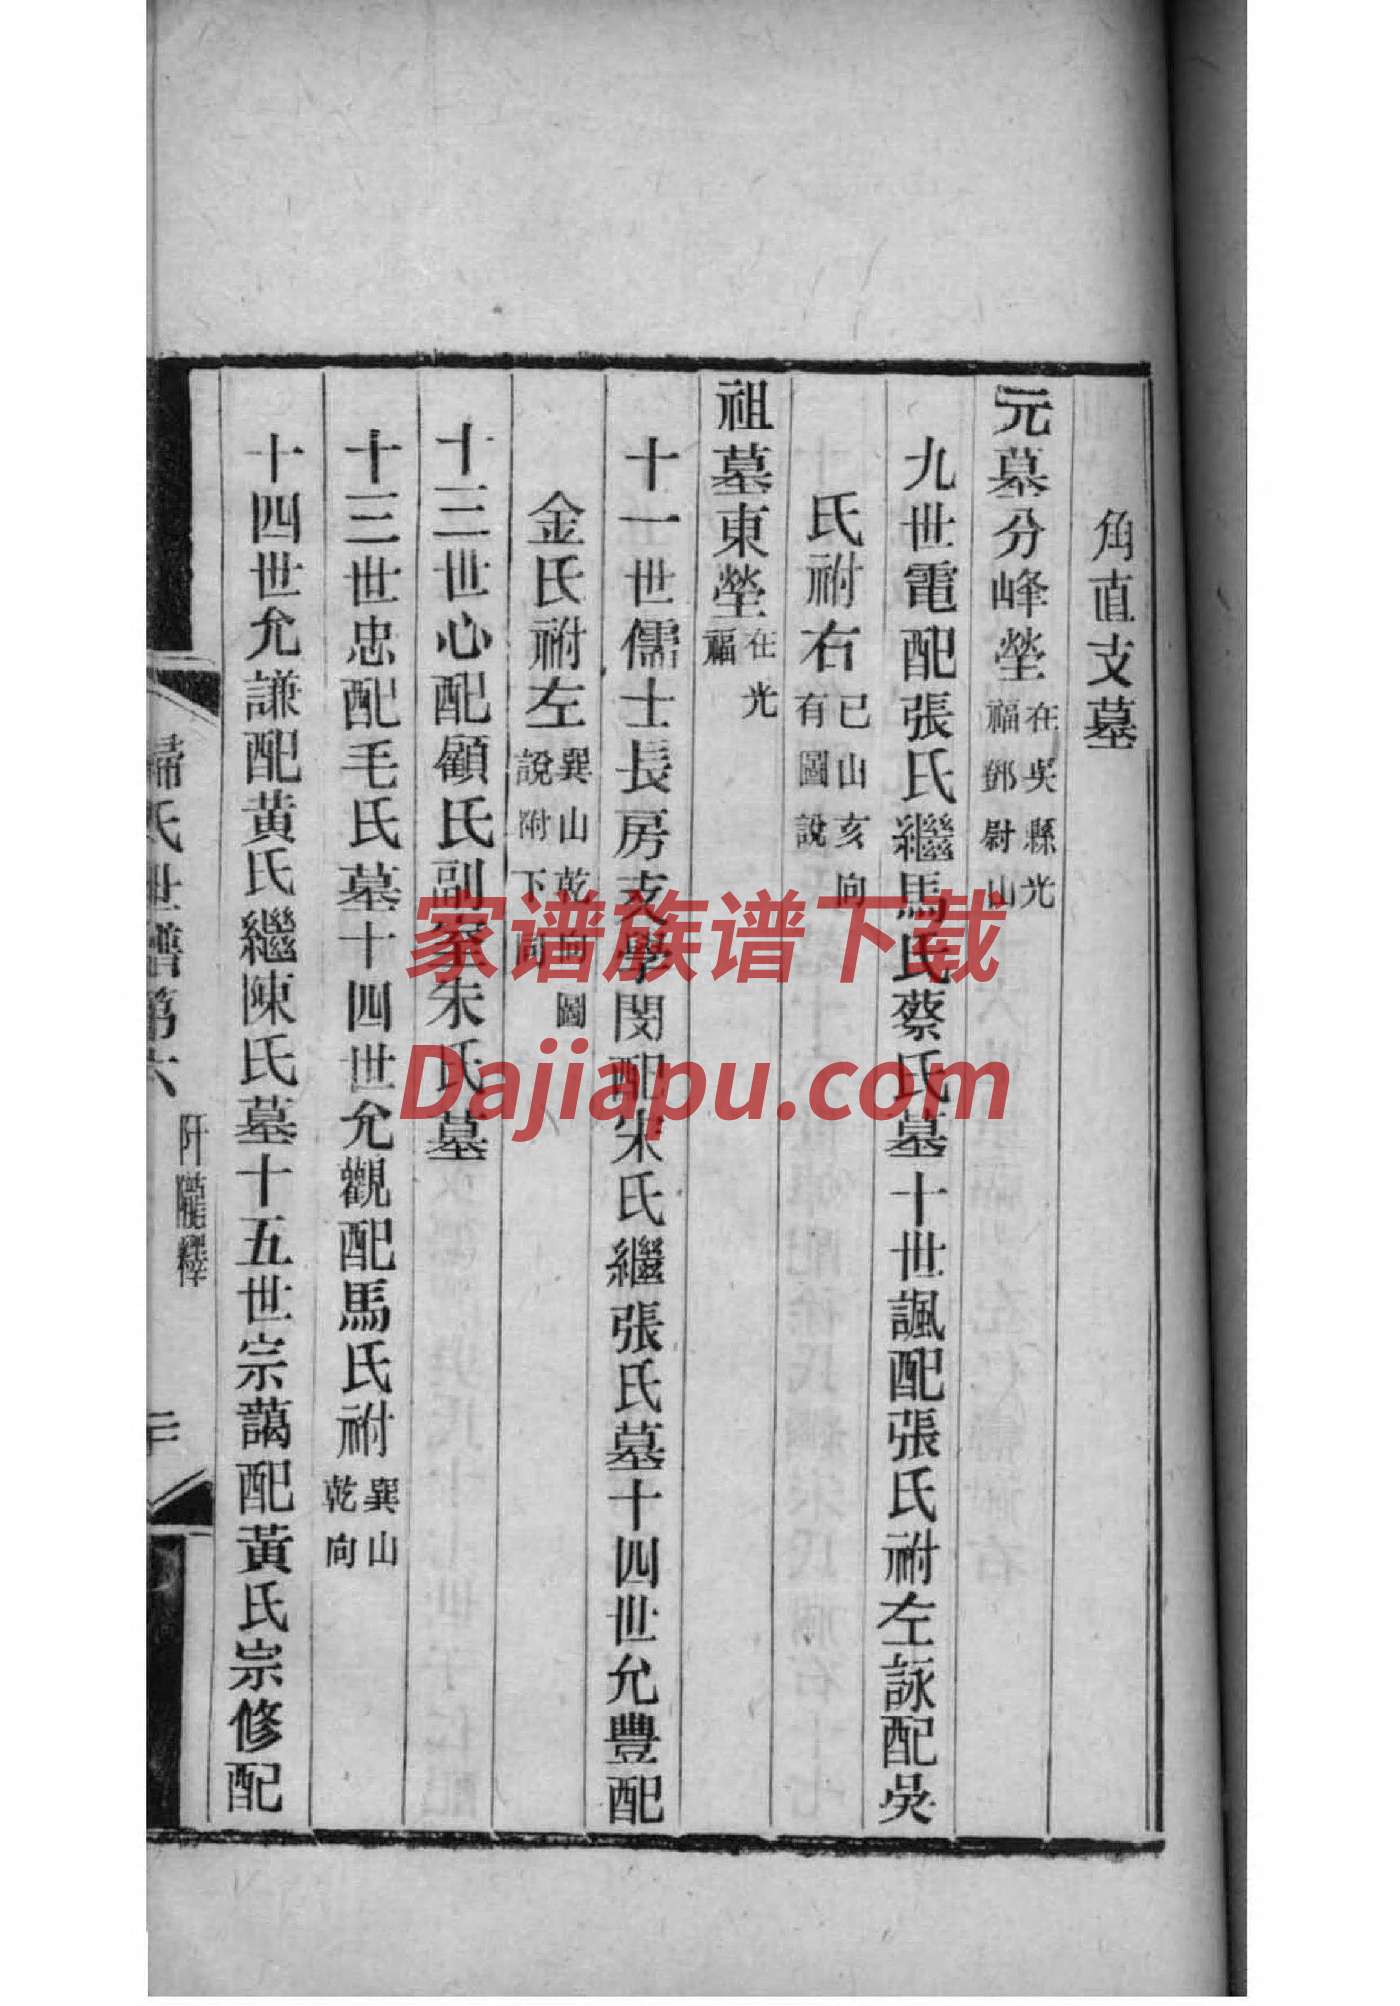 角直支墓
元墓分峰塋在吳縣光福鄧尉山
九世電配張氏繼馬氏蔡氏墓十世諷配張氏祔左詠配吳
氏祔右已山亥向有圖說
祖墓東塋在光福
十一世儒士長房支學閔配宋氏繼張氏墓十四世允豐配
金氏祔左巽山乾向圖說附下同
十三世心配顧氏副室朱氏墓
十三世忠配毛氏墓十四世允觀配馬氏祔巽山乾向
十四世允謙配黃氏繼陳氏墓十五世宗藹配黃氏宗修配
歸氏世譜第六
二
家谱族谱下载
Dajiapu.com